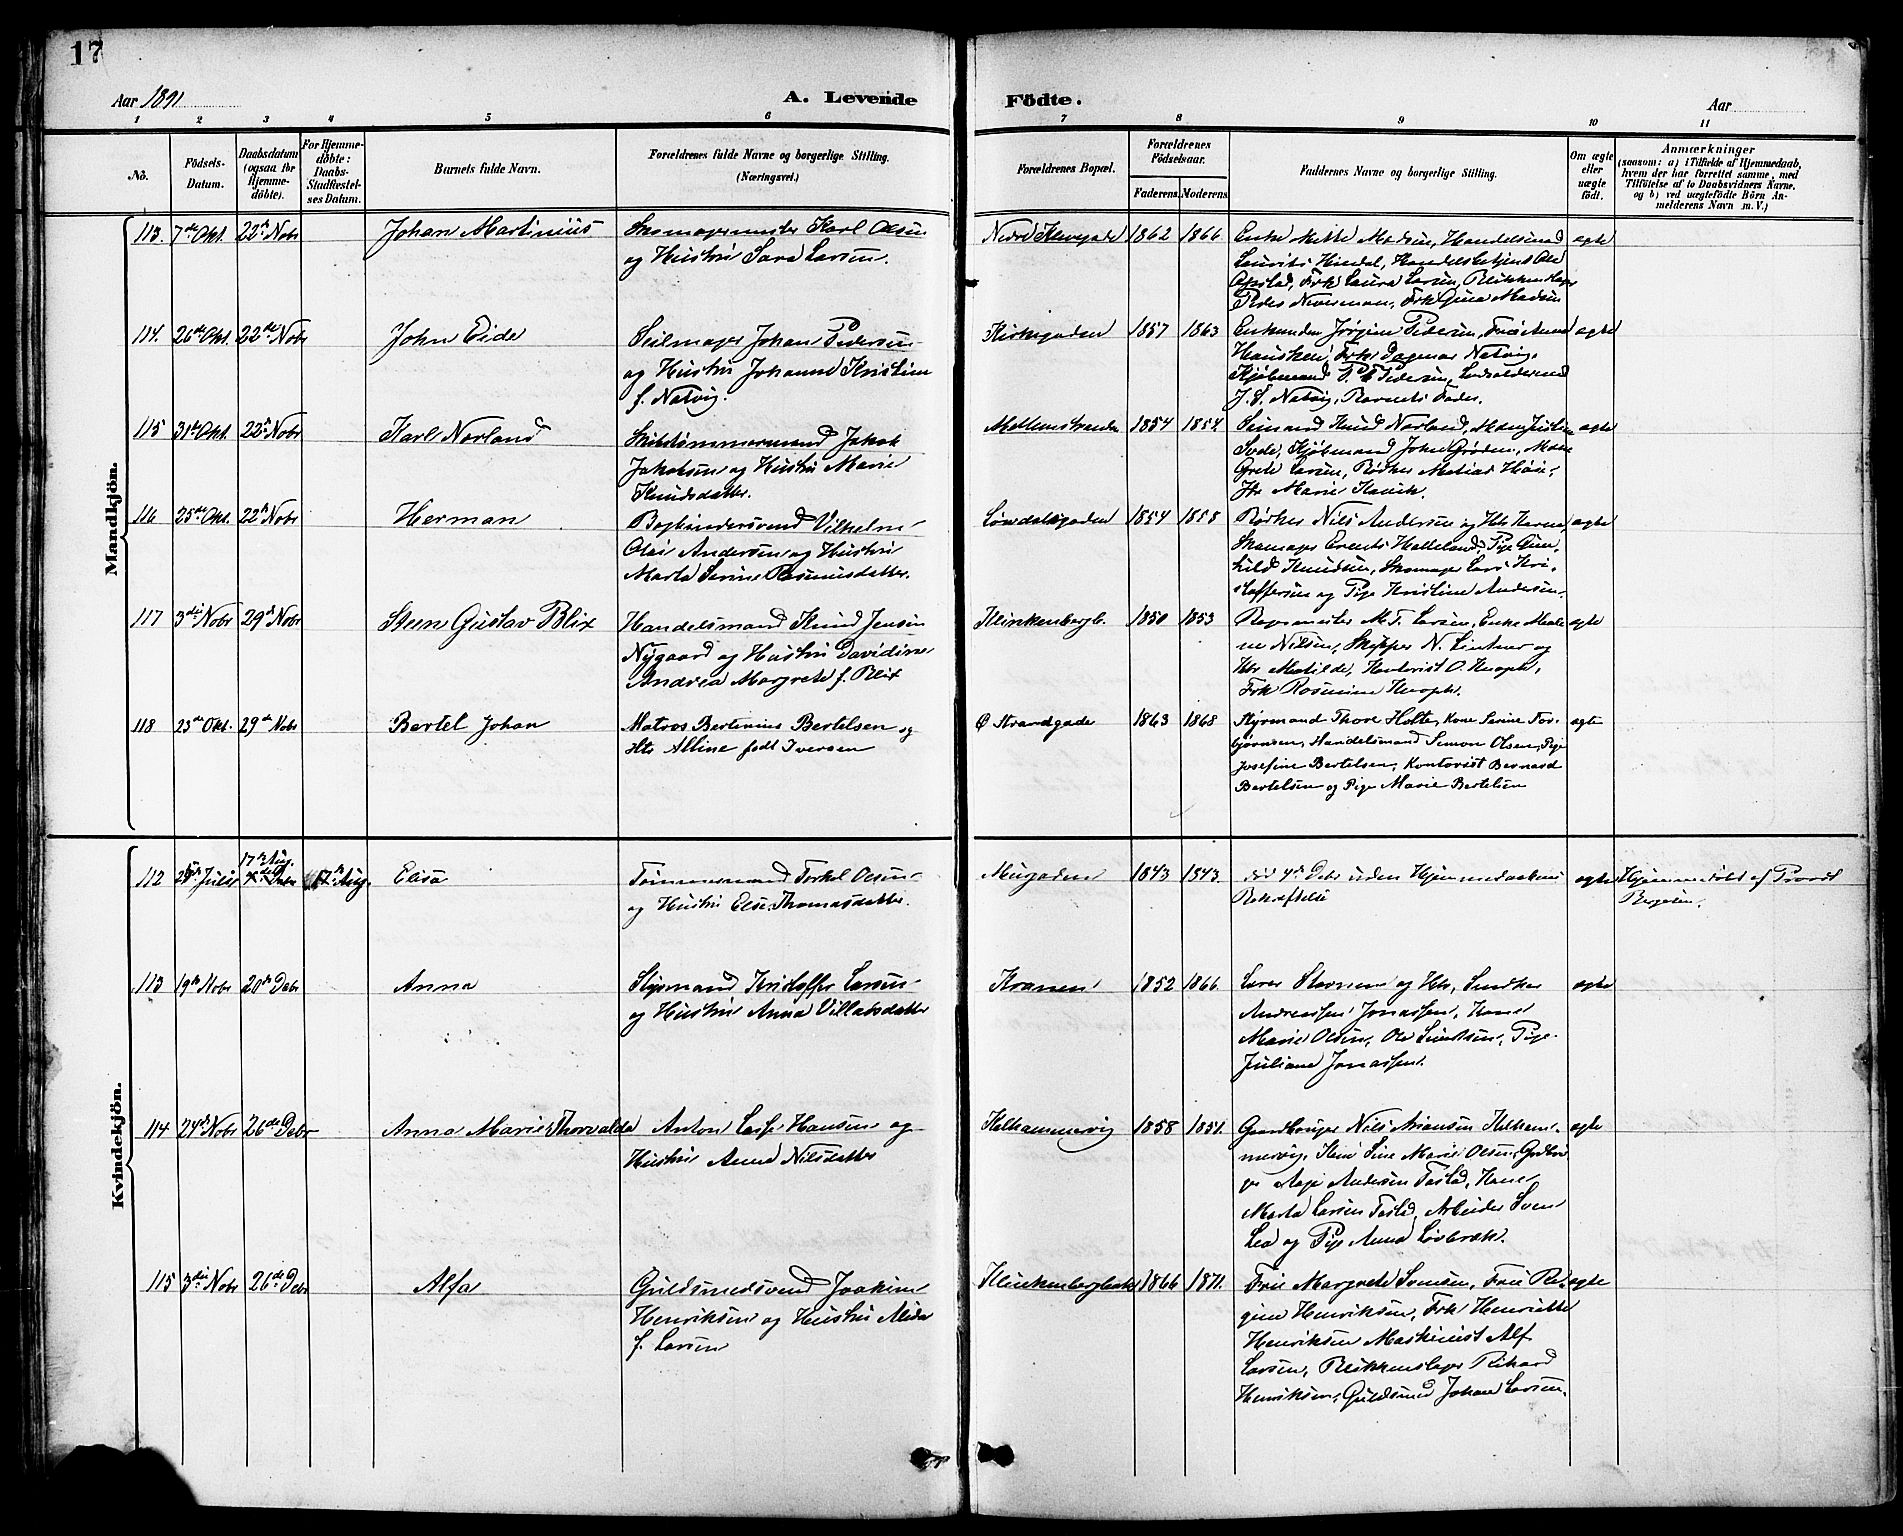 17
Aar 1891
A. Levende Födte.
Aar
1 2 3 4 5 6 7 8 9 10 11
No.
Födsels-
Datum.
Daabsdatum
(ogsaa for
Hjemme-
döbte).
For Hjemme-
döbte:
Daabs-
Stadfæstel-
ses Datum.
Barnets fulde Navn.
Forældrenes fulde Navne og borgerlige Stilling.
(Næringsvei.)
Forældrenes Bopæl.
Forældrenes
Födselsaar.
Faderens. Moderens.
Faddernes Navne og borgerlige Stilling.
Om ægte
eller
uægte
födt.
Anmærkninger
(saasom: a) i Tilfælde af Hjemmedaab,
hvem der har forrettet samme, med
Tilföielse af to Daabsvidners Navne,
og b) ved uægtefödte Börn An-
melderens Navn m. V.)
Mandkjön.
113. 7de Okt. 22de Nobr Johan Martinius
Skomagermester Karl Olsen
og Hustru Sara Larsen.
Nedre Klevegade 1862 1866
Enke Mette Madsen, Handelsmand
Laurits Hindal, Handelsbetjent Ole
Frk Laura Larsen, Blikkenslager
Peder Neverman, Frk Gina Madsen
ægte
114. 26de Okt. 22de Nobr John Eide
Seilmager Johan Pedersen
og Hustru Johanne Kristine
f. Natvig.
Kirkegaden 1857 1863
Enkemden Jørgine Pedersen, Frøi
Hansken, Frk Dagmar Natvig,
Kjøbmand P. Pedersen,
J. S. Natvig, Barnets Fader.
ægte
115 31de Okt. 22de Nobr Karl Norland
Skibstømmermand Jakob
Jakobsen og Hustru Marie
Knudsdatter.
1854 1854.
Sømand Knud Norland,
Kjøbmand John Grøden,
Grete Larsen, Bødker Matias
Marie
ægte
116 25de Okt. 22de Nobr Herman
Bogbindersvend Vilhelm
Olai Andersen og Hustru
Marta Serine Rasmusdatter.
Løvdalsgaden 1854 1858
Bødker Nils Andersen og Hs Kone,
Skomager Helleland, Pige Gun-
hild Knudsen, Skomager Lars Kri-
stoffersen og Pige Kristine Andersen.
ægte
117 3die Nobr 29de Nobr Steen Gustav Blix
Handelsmand Knud Jensen
Nygaard og Hustru Davidine
Andrea Margrete f. Blix
Klinkenbergb. 1850 1853
M. T. Larsen, Enke Male-
ne Nilsen, Skipper N. og
Hs Matilde, Kontorist O.
Frk Rosmine
ægte
118 23de Okt. 29de Nobr Bertel Johan
Matros Bertinius Bertelsen og
Hts Alline født Iversen
Ø Strandgade 1863 1868
Styrmand Thore Holte, Kone Serine Tor-
bjørnsen, Handelsmand Simon Olsen, Pige
Josefine Bertelsen, Kontorist Bernard
Bertelsen og Pige Marie Bertelsen
ægte
Kvindekjön.
112 Juli 17de Aug. 17de Aug. Elisa
Tømmermand Torkel Olsen
og Hustru Else Thomasdatter.
Mugaden 1843 1843.
død 4de Debr uden Hjemmedaabens
Bekræftelse
ægte
Hjemmedøbt af Provst
113 19de Nobr 20de Debr Anna
Styrmand Kristoffer Larsen
og Hustru Anna Villabsdatter
Kranen 1852 1866.
Larer og Hs,
Andreassen Jonassen, Kone
Marie Olsen, Ole Pige
Juliane Jonassen.
ægte
114 24de Nobr 26de Debr Anna Marie Thorvalda
Anton Hansen og
Hustru Anna Nilsdatter
Kelhammervig 1858 1851.
Gaardbruger Nils Kelham-
mervig, Sine Marie Olsen, Grdbru-
ger Aage Andersen Tastad, Kone
Marta Larsen Tastad, Arbeider Sven
Lea og Pige Anna Løvbræk.
ægte
115 3die Nobr 26de Debr Alfa
Guldsmedsvend Joakim
Henriksen og Hustru Alida
f. Larsen
Klinkenbergbakke 1866 1871.
Frue Margrete Svensen, Frue Re-
gine Henriksen, Frk Henriette
Henriksen Maskinist Alf
Larsen, Blikkenslager Rikard
Henriksen, Guldsmed Johan Larsen.
ægte